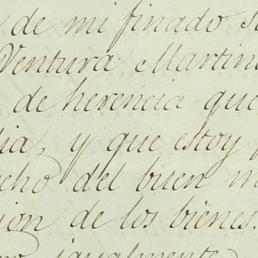 de mi finado
Ventura Martin
de herencia que
ia, y que estoy
cho del buen
ion de los bienes.
igualmente